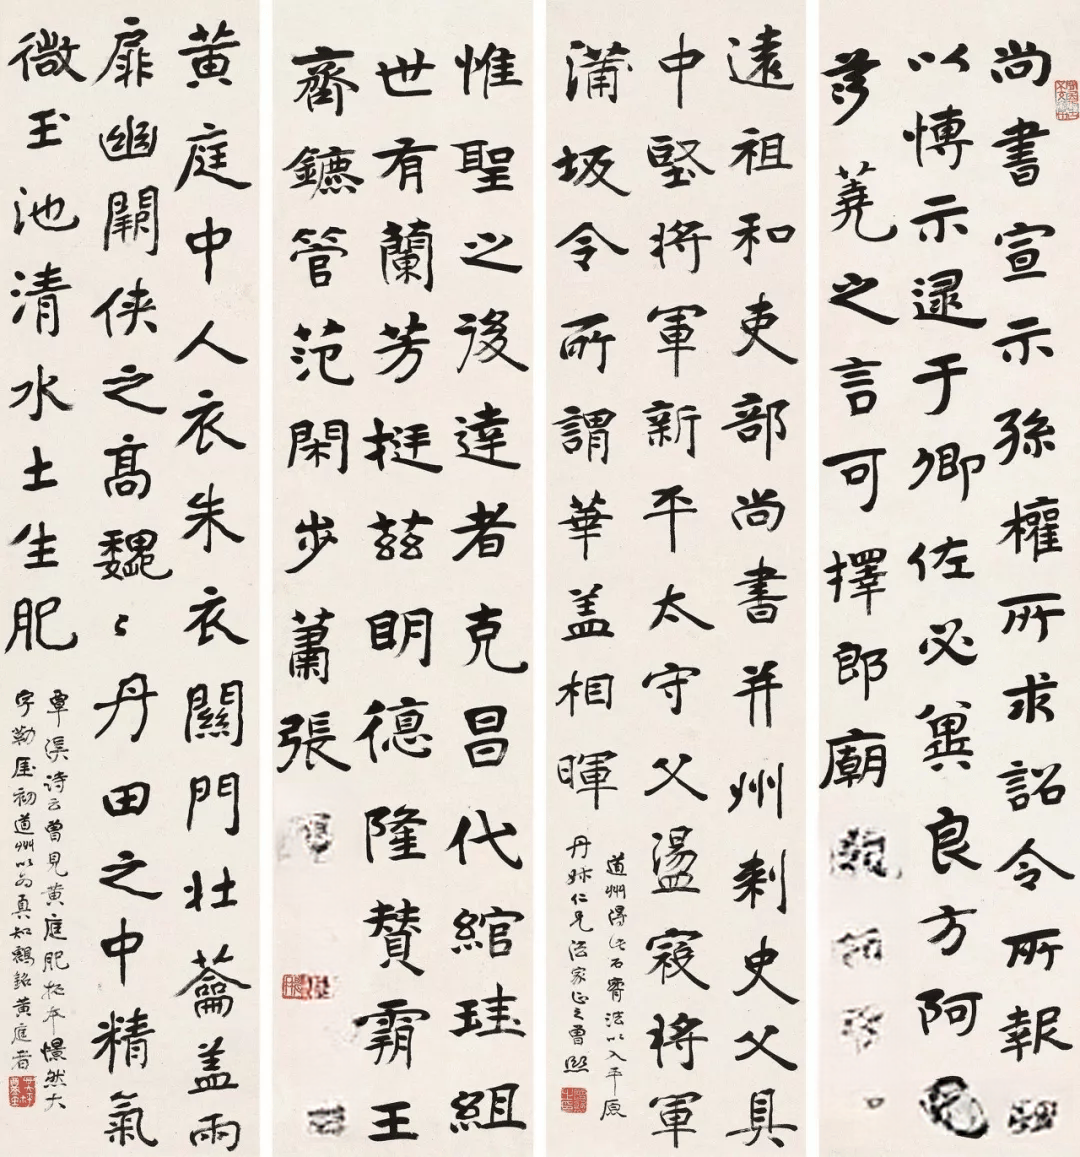 尚書宣示孫權所求詔令所報
以博示逮于卿佐必冀良方阿
芻蕘之言可擇郎廟
遠祖和吏部尚書并州刺史父具
中堅將軍新平太守父盪寇將軍
蒲坂令所謂華盖相暉
道州得此石脊法以入平原
丹林仁兄法家正之曾熙
惟聖之後達者克昌代綰珪組
世有蘭芳挺茲明德隆贊霸王
齊鑣管范閑步蕭張
黃庭中人衣朱衣關門壯蘥盖兩
扉幽闕俠之高巍々丹田之中精氣
微玉池清水土生肥
覃溪詩云曾見黃庭肥拓本憬然大
字勒厓初道州以為真知鶴銘黃庭者